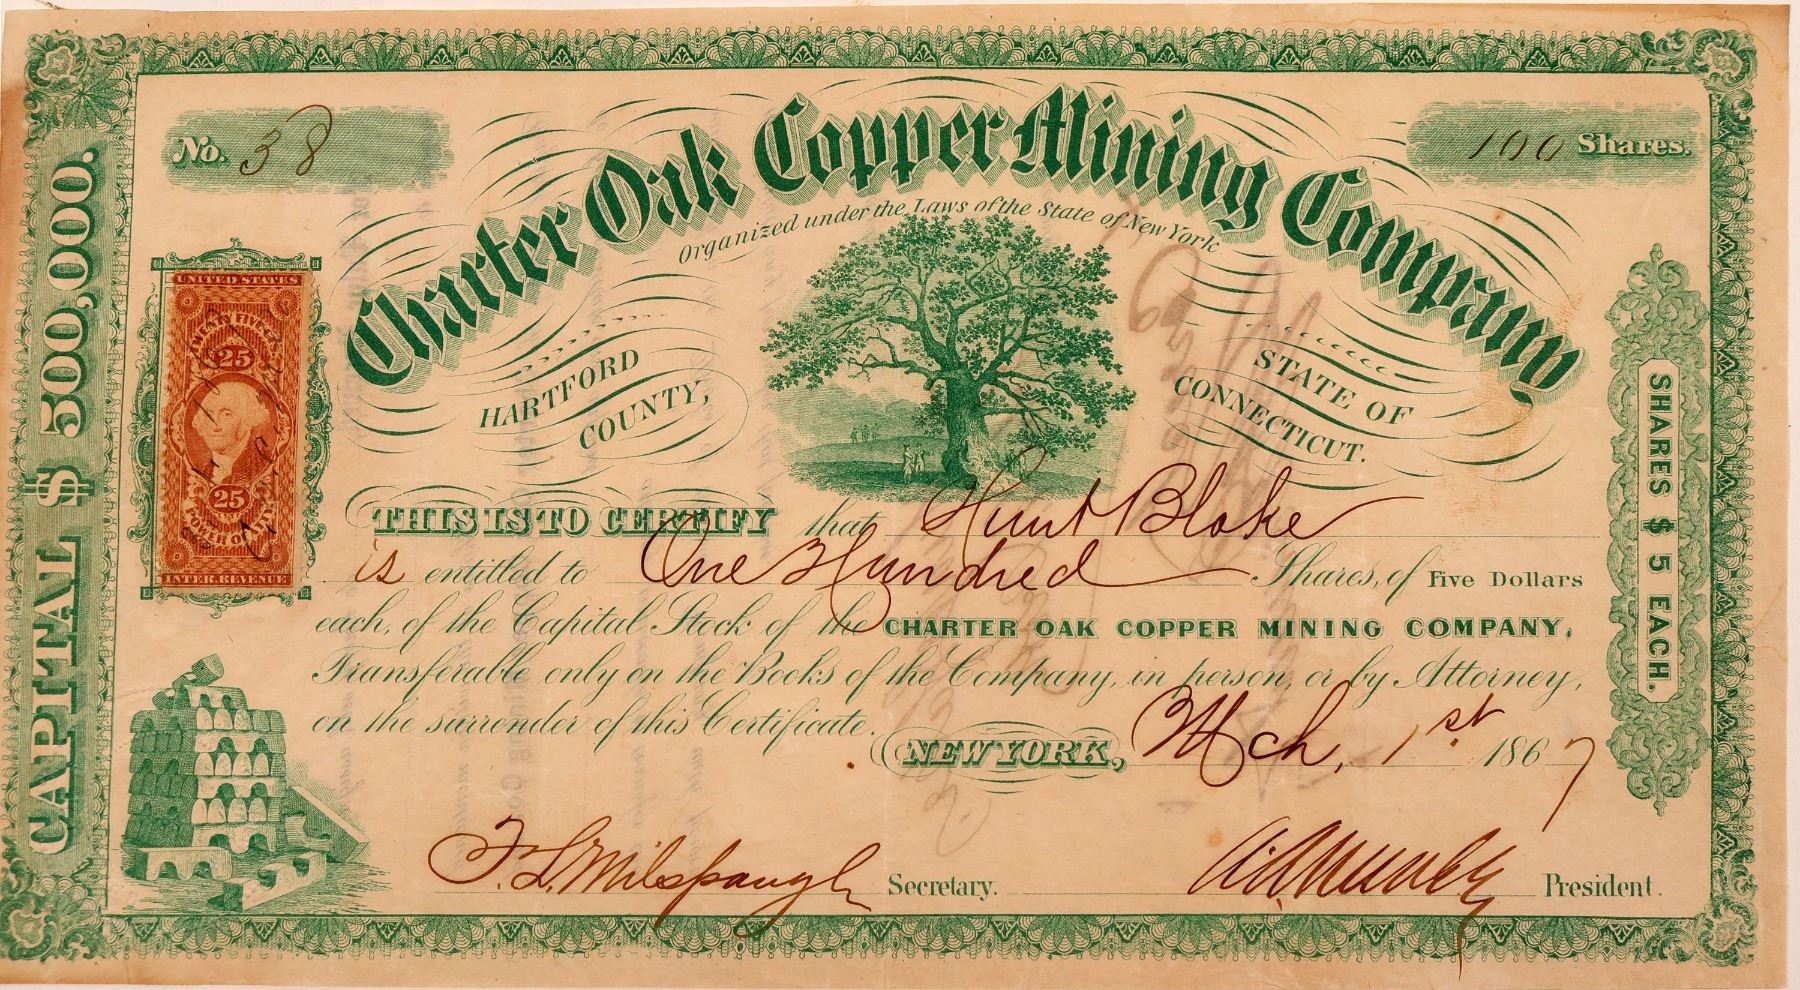 No. 38
100 Shares.
Charter Oak Copper Mining Company
Organized under the Laws of the State of New York
HARTFORD COUNTY,
STATE OF CONNECTICUT.
CAPITAL $ 500,000.
UNITED STATES
TWENTY FIVE
25
25
POWER OF
INTER. REVENUE
SHARES $ 5 EACH.
THIS IS TO CERTIFY that Hunt Blake
is entitled to One Hundred Shares, of Five Dollars
each, of the Capital Stock of the CHARTER OAK COPPER MINING COMPANY,
Transferable only on the Books of the Company, in person, or by Attorney,
on the surrender of this Certificate.
NEW YORK, Mch, 1st 1867
F. L. Milspaugh Secretary.
President.